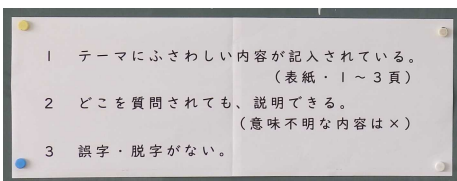 1 テーマにふさわしい内容が記入されている。
(表紙・1～3頁)
2 どこを質問されても、説明できる。
(意味不明な内容は×)
3 誤字・脱字がない。